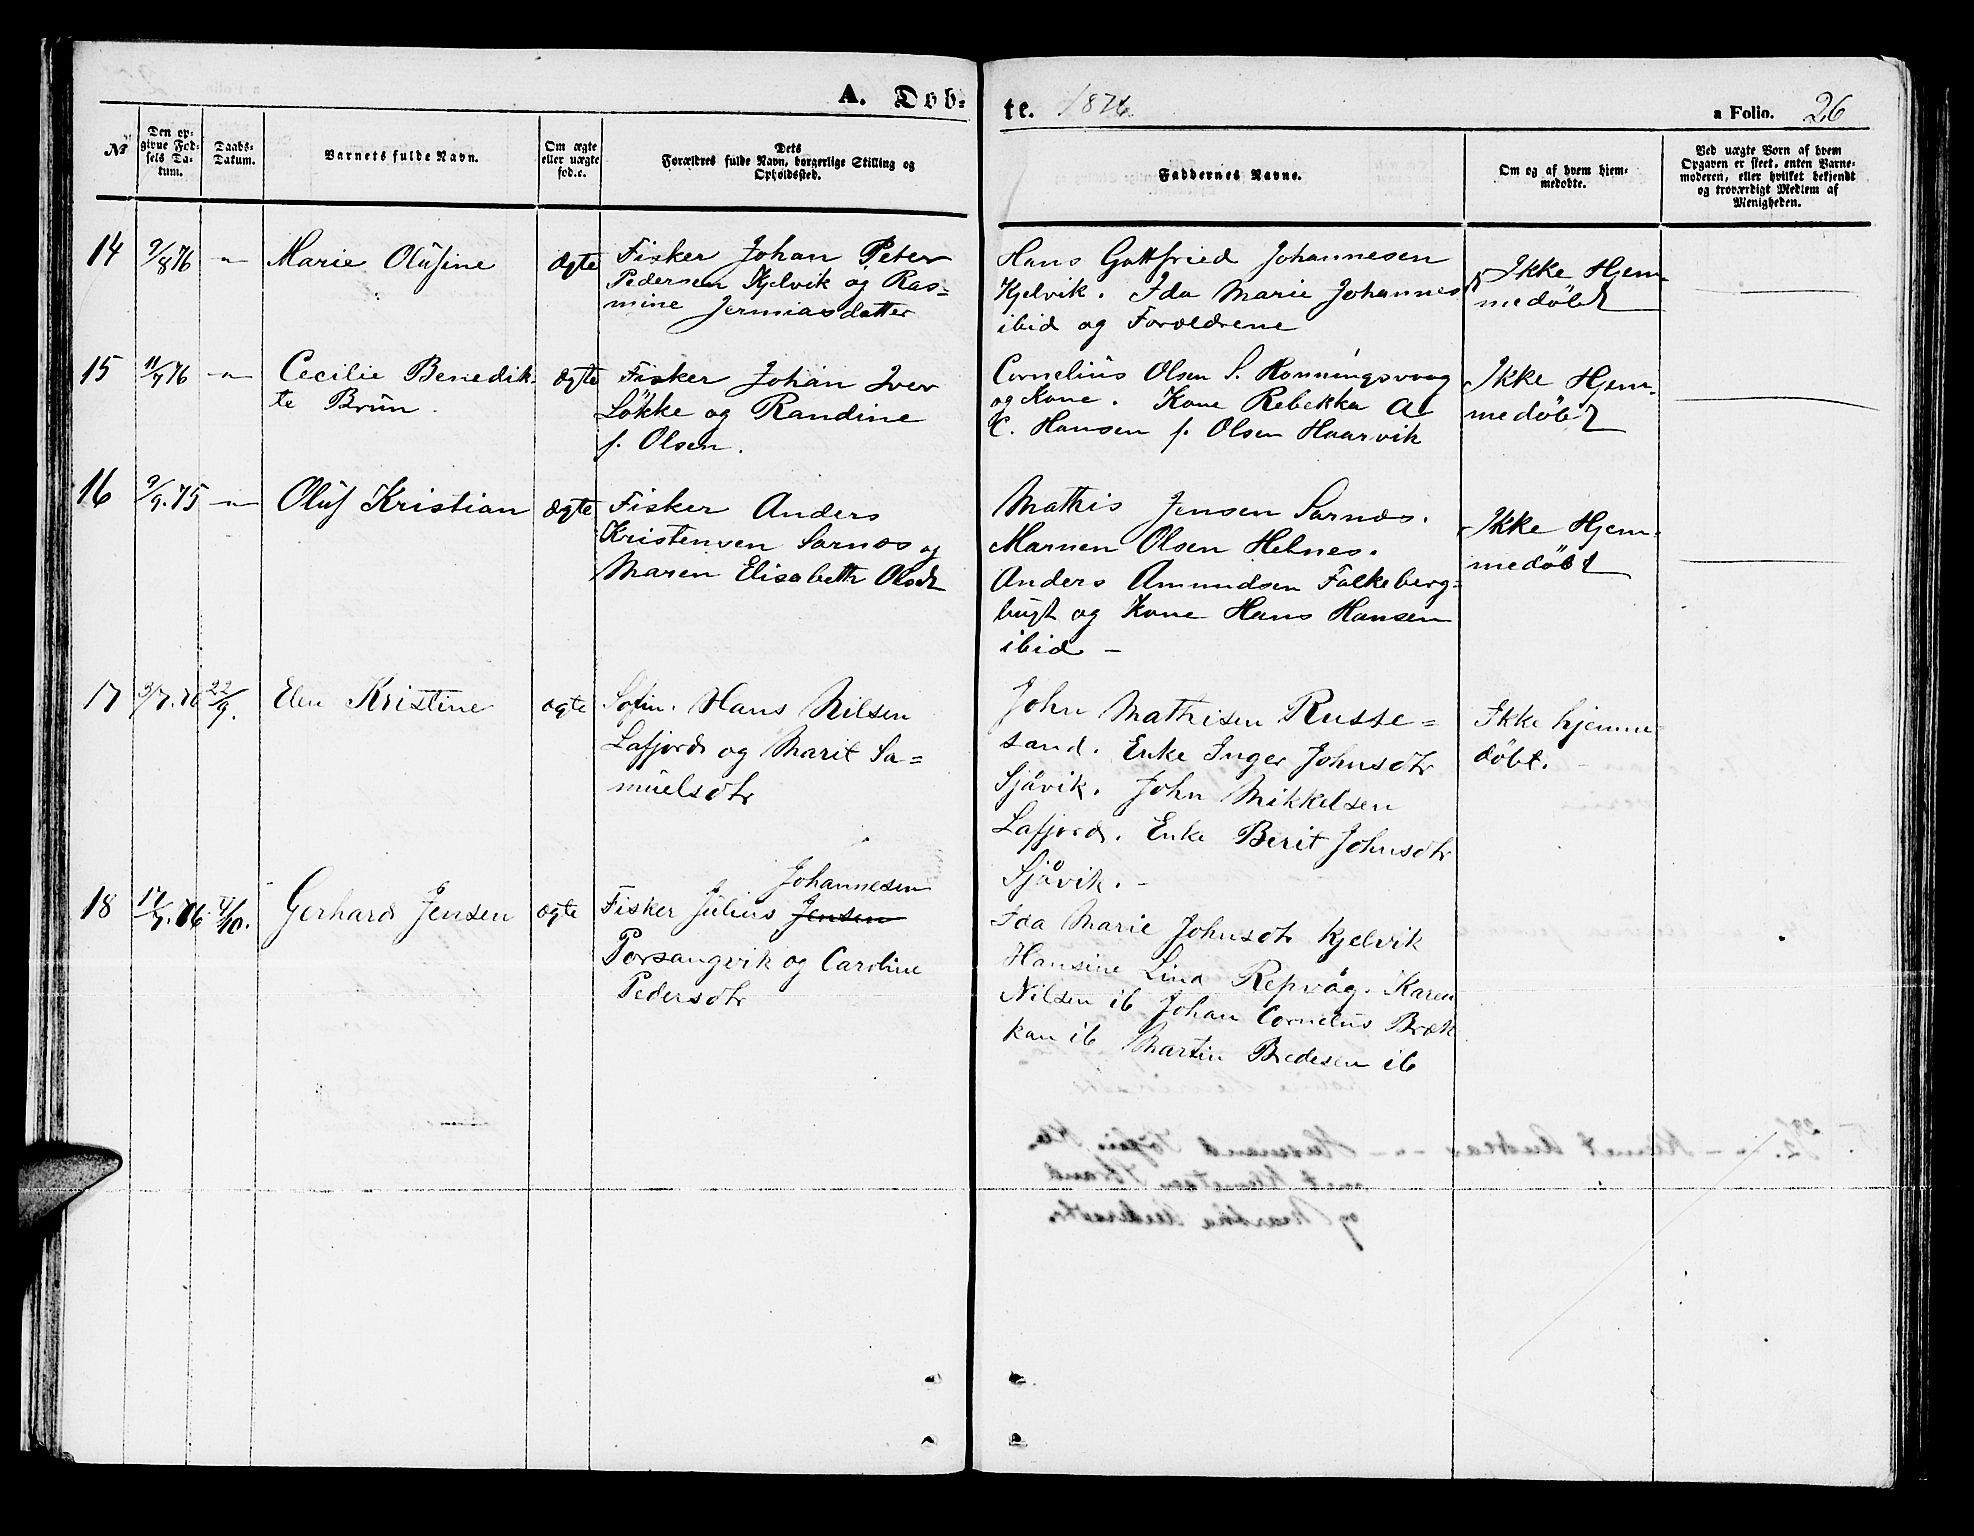 A. Døb-
te. 1876
a Folio. 26
№
Den op-
givne Fød-
sels Da-
tum.
Daabs-
Datum.
Barnets fulde Navn.
Om ægte
eller uægte
fød.e.
Dets
Forældres fulde Navn, borgerlige Stilling og
Opholdssted.
Faddernes Navne.
Om og af hvem hjem-
medøbte.
Ved uægte Børn af hvem
Opgaven er skeet, enten Barne-
moderen, eller hvilket bekjendt
og troværdigt Medlem af
Menigheden.
14 9/8 76 -"- Marie Olufine ægte
Fisker Johan Peter
Pedersen Kjelvik og Ras=
mine Jermiasdatter
Hans Gottfried Johannesen
Kjelvik. Ida Marie Johannesd
ibid og Forældrene
Ikke Hjem-
medøbt
15 11/7 76 -"- Cecilie Benedik-
te Brun.
ægte
Fisker Johan Iver
Løkke og Randine
f. Olsen.
Cornelius Olsen S. Honningsvaag
og Kone. Kone Rebekka A
C. Hansen f. Olsen Haarvik
Ikke Hjem-
medøbt
16 9/9. 75 -"- Oluf Kristian ægte
Fisker Anders
Kristensen Sarnæs og
Maren Elisabeth Olsdt
Mathis Jensen Sarnæs.
Marnen Olsen Helnes.
Anders Amundsen Falkeberg=
bugt og Kone Hans Hansen
ibid -
Ikke Hjem-
medøbt
17 3/7. 76 22/9. Elen Kristine ægte
Sofin. Hans Nilsen
Lafjord og Marit Sa=
muelsdtr
John Mathisen Russe=
sand. Enke Inger Johnsdtr
Sjåvik. John Mikkelsen
Lafjord. Enke Berit Johnsdtr
Sjåvik. -
Ikke hjemme
døbt.
18 17/7. 76 /10. Gerhard Jensen ægte
Johannesen
Fisker Julius Jensen
Porsangvik og Caroline
Pedersdtr
Ida Marie Johnsdtr Kjelvik
Hansine Lind Repvåg. Karen
Nilsen ib Johan Cornelius Bræk
kan ib Martin Bredesen ib